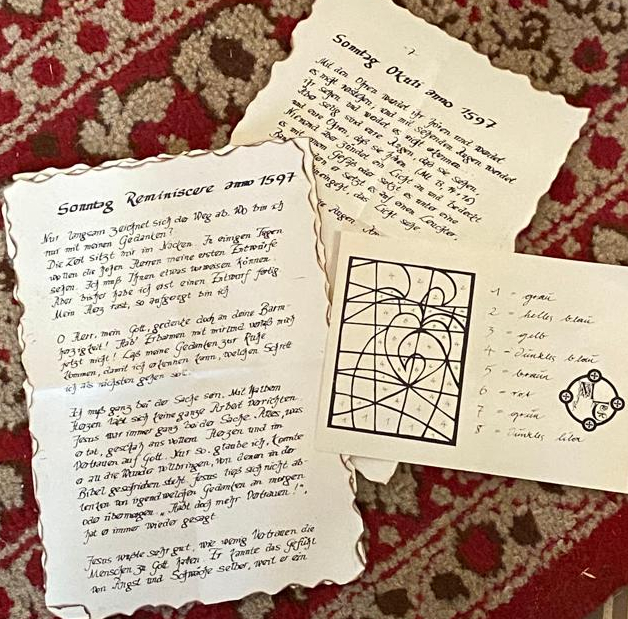 Sonntag Reminiscere anno 1597
Nur langsam zeichnet sich der Weg ab. Wo bin ich
nur mit meinen Gedanken?
Die Zeit sitzt mir im Nacken. In einigen Tagen
wollen die hohen Herren meine ersten Entwürfe
sehen. Ich muß Ihnen etwas vorweisen können.
Aber bisher habe ich erst einen Entwurf fertig
Mein Herz rast, so aufgeregt bin ich
O Herr, mein Gott, gedenke doch an deine Barm-
herzigkeit! Hab' Erbarmen mit mir und verlaß mich
jetzt nicht! Laß meine Gedanken zur Ruhe
kommen, damit ich erkennen kann, welchen Schritt
ich als nächsten gehen soll.
Ich muß ganz bei der Sache sein. Mit halbem
Herzen läßt sich keine ganze Arbeit verrichten.
Jesus war immer ganz bei der Sache. Alles, was
er tat, geschah aus vollem Herzen und im
Vertrauen auf Gott. Nur so, glaube ich, konnte
er all die Wunder vollbringen, von denen in der
Bibel geschrieben steht. Jesus ließ sich nicht ab-
lenken von irgendwelchen Gedanken an morgen
oder übermorgen. „Habt doch mehr Vertrauen!",
hat er immer wieder gesagt
Jesus wußte sehr gut, wie wenig Vertrauen die
Menschen zu Gott haben. Er kannte das Gefühl
von Angst und Schwäche selber, weil er ein
- 7 -
Sonntag Okuli anno 1597
Mit den Ohren werdet ihr hören und werdet
es nicht verstehen; und mit sehenden Augen werdet
ihr sehen und werdet es nicht erkennen.
Aber selig sind eure Augen, daß sie sehen,
und eure Ohren, daß sie hören
Niemand aber zündet ein Licht an und bedeckt
mit einem Gefäß oder setzt es unter eine
setzt es auf einen Leuchter,
das Licht sehe
1 = grau
2 = helles blau
3 = gelb
4 = dunkles blau
5 = braun
6 = rot
7 = grün
8 = dunkles lila